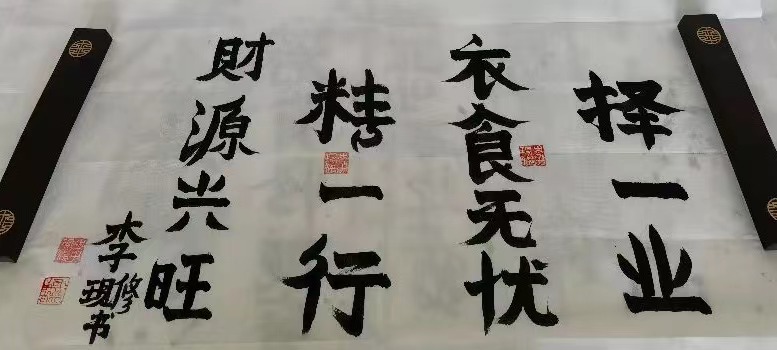 择一业
衣食无忧
精一行
财源兴旺
李现修书